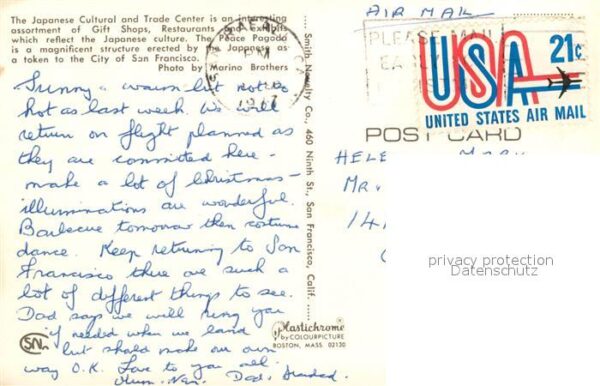 The Japanese Cultural and Trade Center is an interesting
assortment of Gift Shops, Restaurants and exhibits
which reflect the Japanese culture. The Peace Pagoda
is a magnificent structure erected by the Japanese as
a token to the City of San Francisco.
Photo by Marino Brothers
Sunny & warm but not so
hot as last week. We will
return on flight planned as
they are committed here -
make a lot of Christmas -
illuminations are wonderful.
Barbecue tomorrow then costume
dance. Keep returning to San
Francisco there are such a
lot of different things to see.
Dad says we will ring you
if needed when we land
but should make our own
way O.K. Love to you all.
Mum. Dad.
SN
Smith Novelty Co., 460 Ninth St., San Francisco, Calif.
Plastichrome
by COLOURPICTURE
BOSTON, MASS. 02130
AIR MAIL
PLEASE MAIL
EA
PM
CA
USA 21c
UNITED STATES AIR MAIL
POST CARD
HELE
MR.
14
privacy protection
Datenschutz